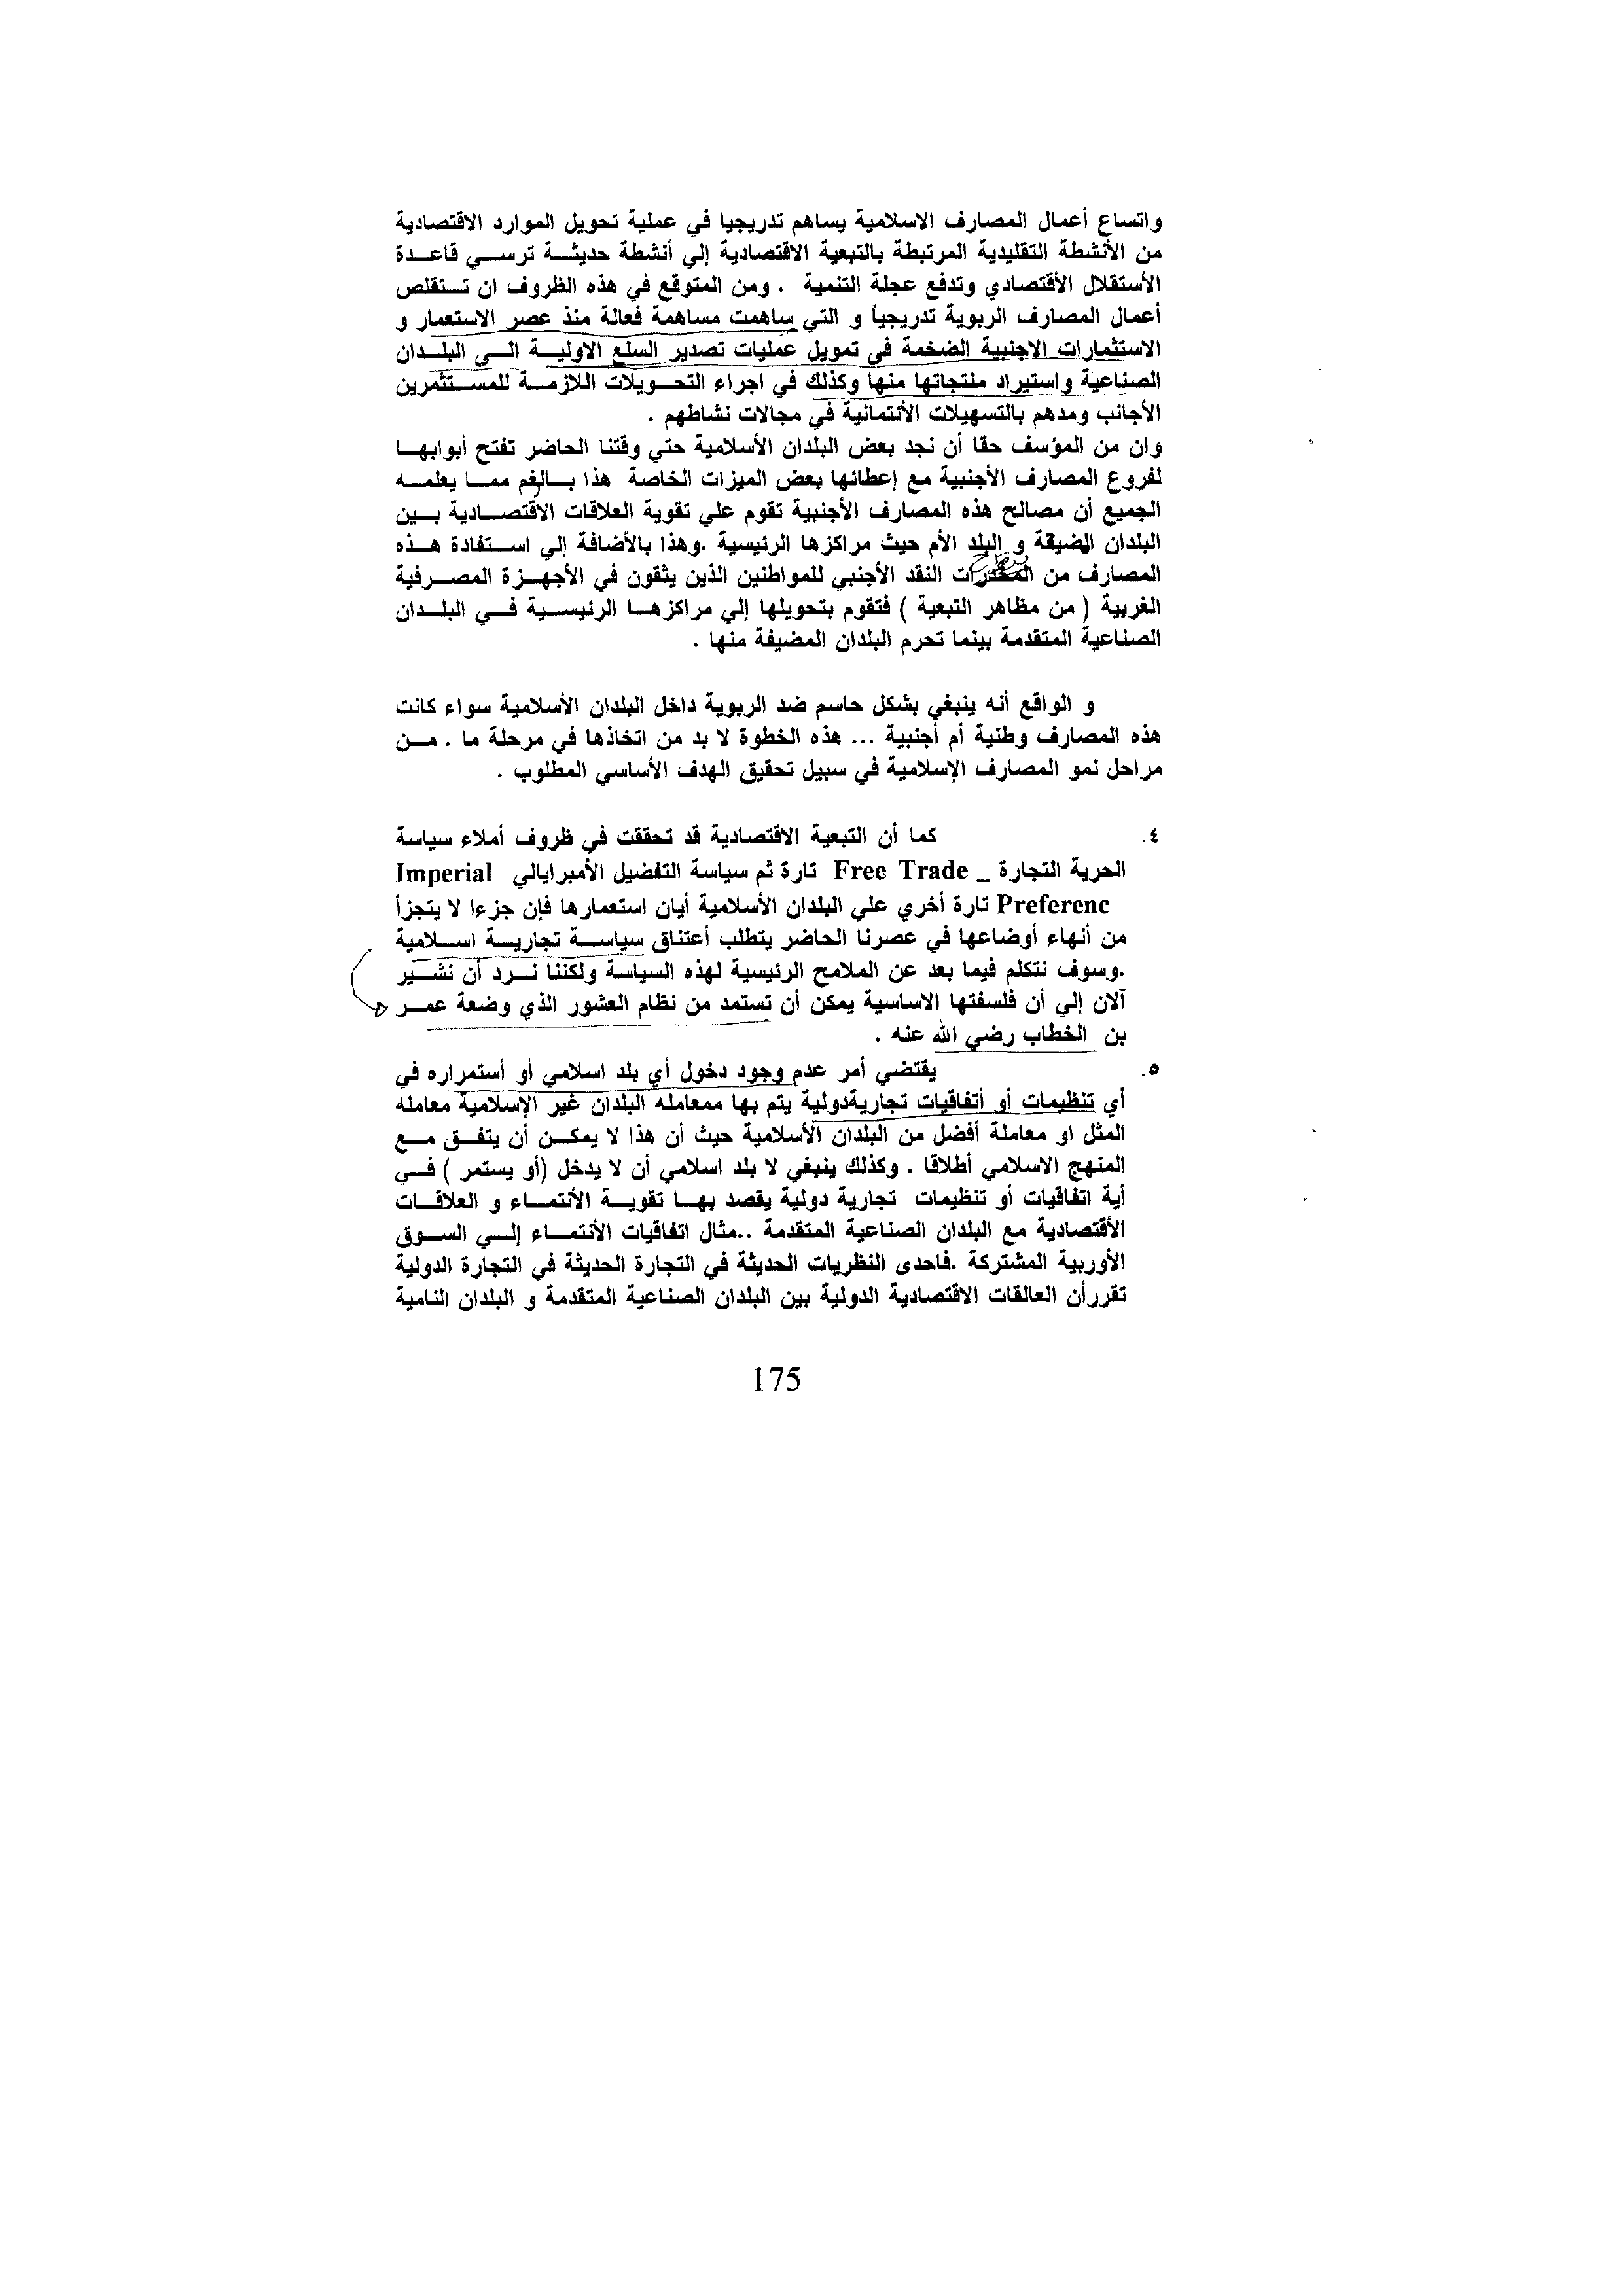 واتساع أعمال المصارف الاسلامية يساهم تدريجيا في عملية تحويل الموارد الاقتصادية
من الأنشطة التقليدية المرتبطة بالتبعية الاقتصادية إلي أنشطة حديثة ترسي قاعدة
الأستقلال الأقتصادي وتدفع عجلة التنمية . ومن المتوقع في هذه الظروف ان تستقلص
أعمال المصارف الربوية تدريجياً و التي ساهمت مساهمة فعالة منذ عصر الاستعمار و
الاستثمارات الاجنبية الضخمة في تمويل عمليات تصدير السلع الاولية الى البلدان
الصناعية واستيراد منتجاتها منها وكذلك في اجراء التحويلات اللازمة للمستثمرين
الأجانب ومدهم بالتسهيلات الأئتمانية في مجالات نشاطهم .
وان من المؤسف حقا أن نجد بعض البلدان الأسلامية حتي وقتنا الحاضر تفتح أبوابها
لفروع المصارف الأجنبية مع إعطائها بعض الميزات الخاصة هذا بالغم مما يعلمه
الجميع أن مصالح هذه المصارف الأجنبية تقوم علي تقوية العلاقات الاقتصادية بين
البلدان الضيقة و البلد الأم حيث مراكزها الرئيسية .وهذا بالأضافة إلي استفادة هذه
المصارف من النقد الأجنبي للمواطنين الذين يثقون في الأجهزة المصرفية
الغربية ( من مظاهر التبعية ) فتقوم بتحويلها إلي مراكزها الرئيسية في البلدان
الصناعية المتقدمة بينما تحرم البلدان المضيفة منها .
و الواقع أنه ينبغي بشكل حاسم ضد الربوية داخل البلدان الأسلامية سواء كانت
هذه المصارف وطنية أم أجنبية ... هذه الخطوة لا بد من اتخاذها في مرحلة ما . من
مراحل نمو المصارف الإسلامية في سبيل تحقيق الهدف الأساسي المطلوب .
٤. كما أن التبعية الاقتصادية قد تحققت في ظروف أملاء سياسة
الحرية التجارة _ Free Trade تارة ثم سياسة التفضيل الأمبرايالي Imperial
Preferenc تارة أخري علي البلدان الأسلامية أيان استعمارها فإن جزءا لا يتجزأ
من أنهاء أوضاعها في عصرنا الحاضر يتطلب أعتناق سياسة تجارية اسلامية
.وسوف نتكلم فيما بعد عن الملامح الرئيسية لهذه السياسة ولكننا نرد أن نشير
آلان إلي أن فلسفتها الاساسية يمكن أن تستمد من نظام العشور الذي وضعة عمر
بن الخطاب رضي الله عنه .
٥. يقتضي أمر عدم وجود دخول أي بلد اسلامي أو أستمراره في
أي تنظيمات أو أتفاقيات تجاريةدولية يتم بها ممعامله البلدان غير الإسلامية معامله
المثل او معاملة أفضل من البلدان الأسلامية حيث أن هذا لا يمكن أن يتفق مع
المنهج الاسلامي أطلاقا . وكذلك ينبغي لا بلد اسلامي أن لا يدخل (أو يستمر ) في
أية اتفاقيات أو تنظيمات تجارية دولية يقصد بها تقوية الأنتماء و العلاقات
الأقتصادية مع البلدان الصناعية المتقدمة ..مثال اتفاقيات الأنتماء إلي السوق
الأوربية المشتركة .فاحدى النظريات الحديثة في التجارة الحديثة في التجارة الدولية
تقررأن العالقات الاقتصادية الدولية بين البلدان الصناعية المتقدمة و البلدان النامية
175